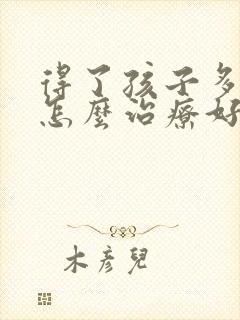 得了孩子多
怎麼治療好
木彥兒